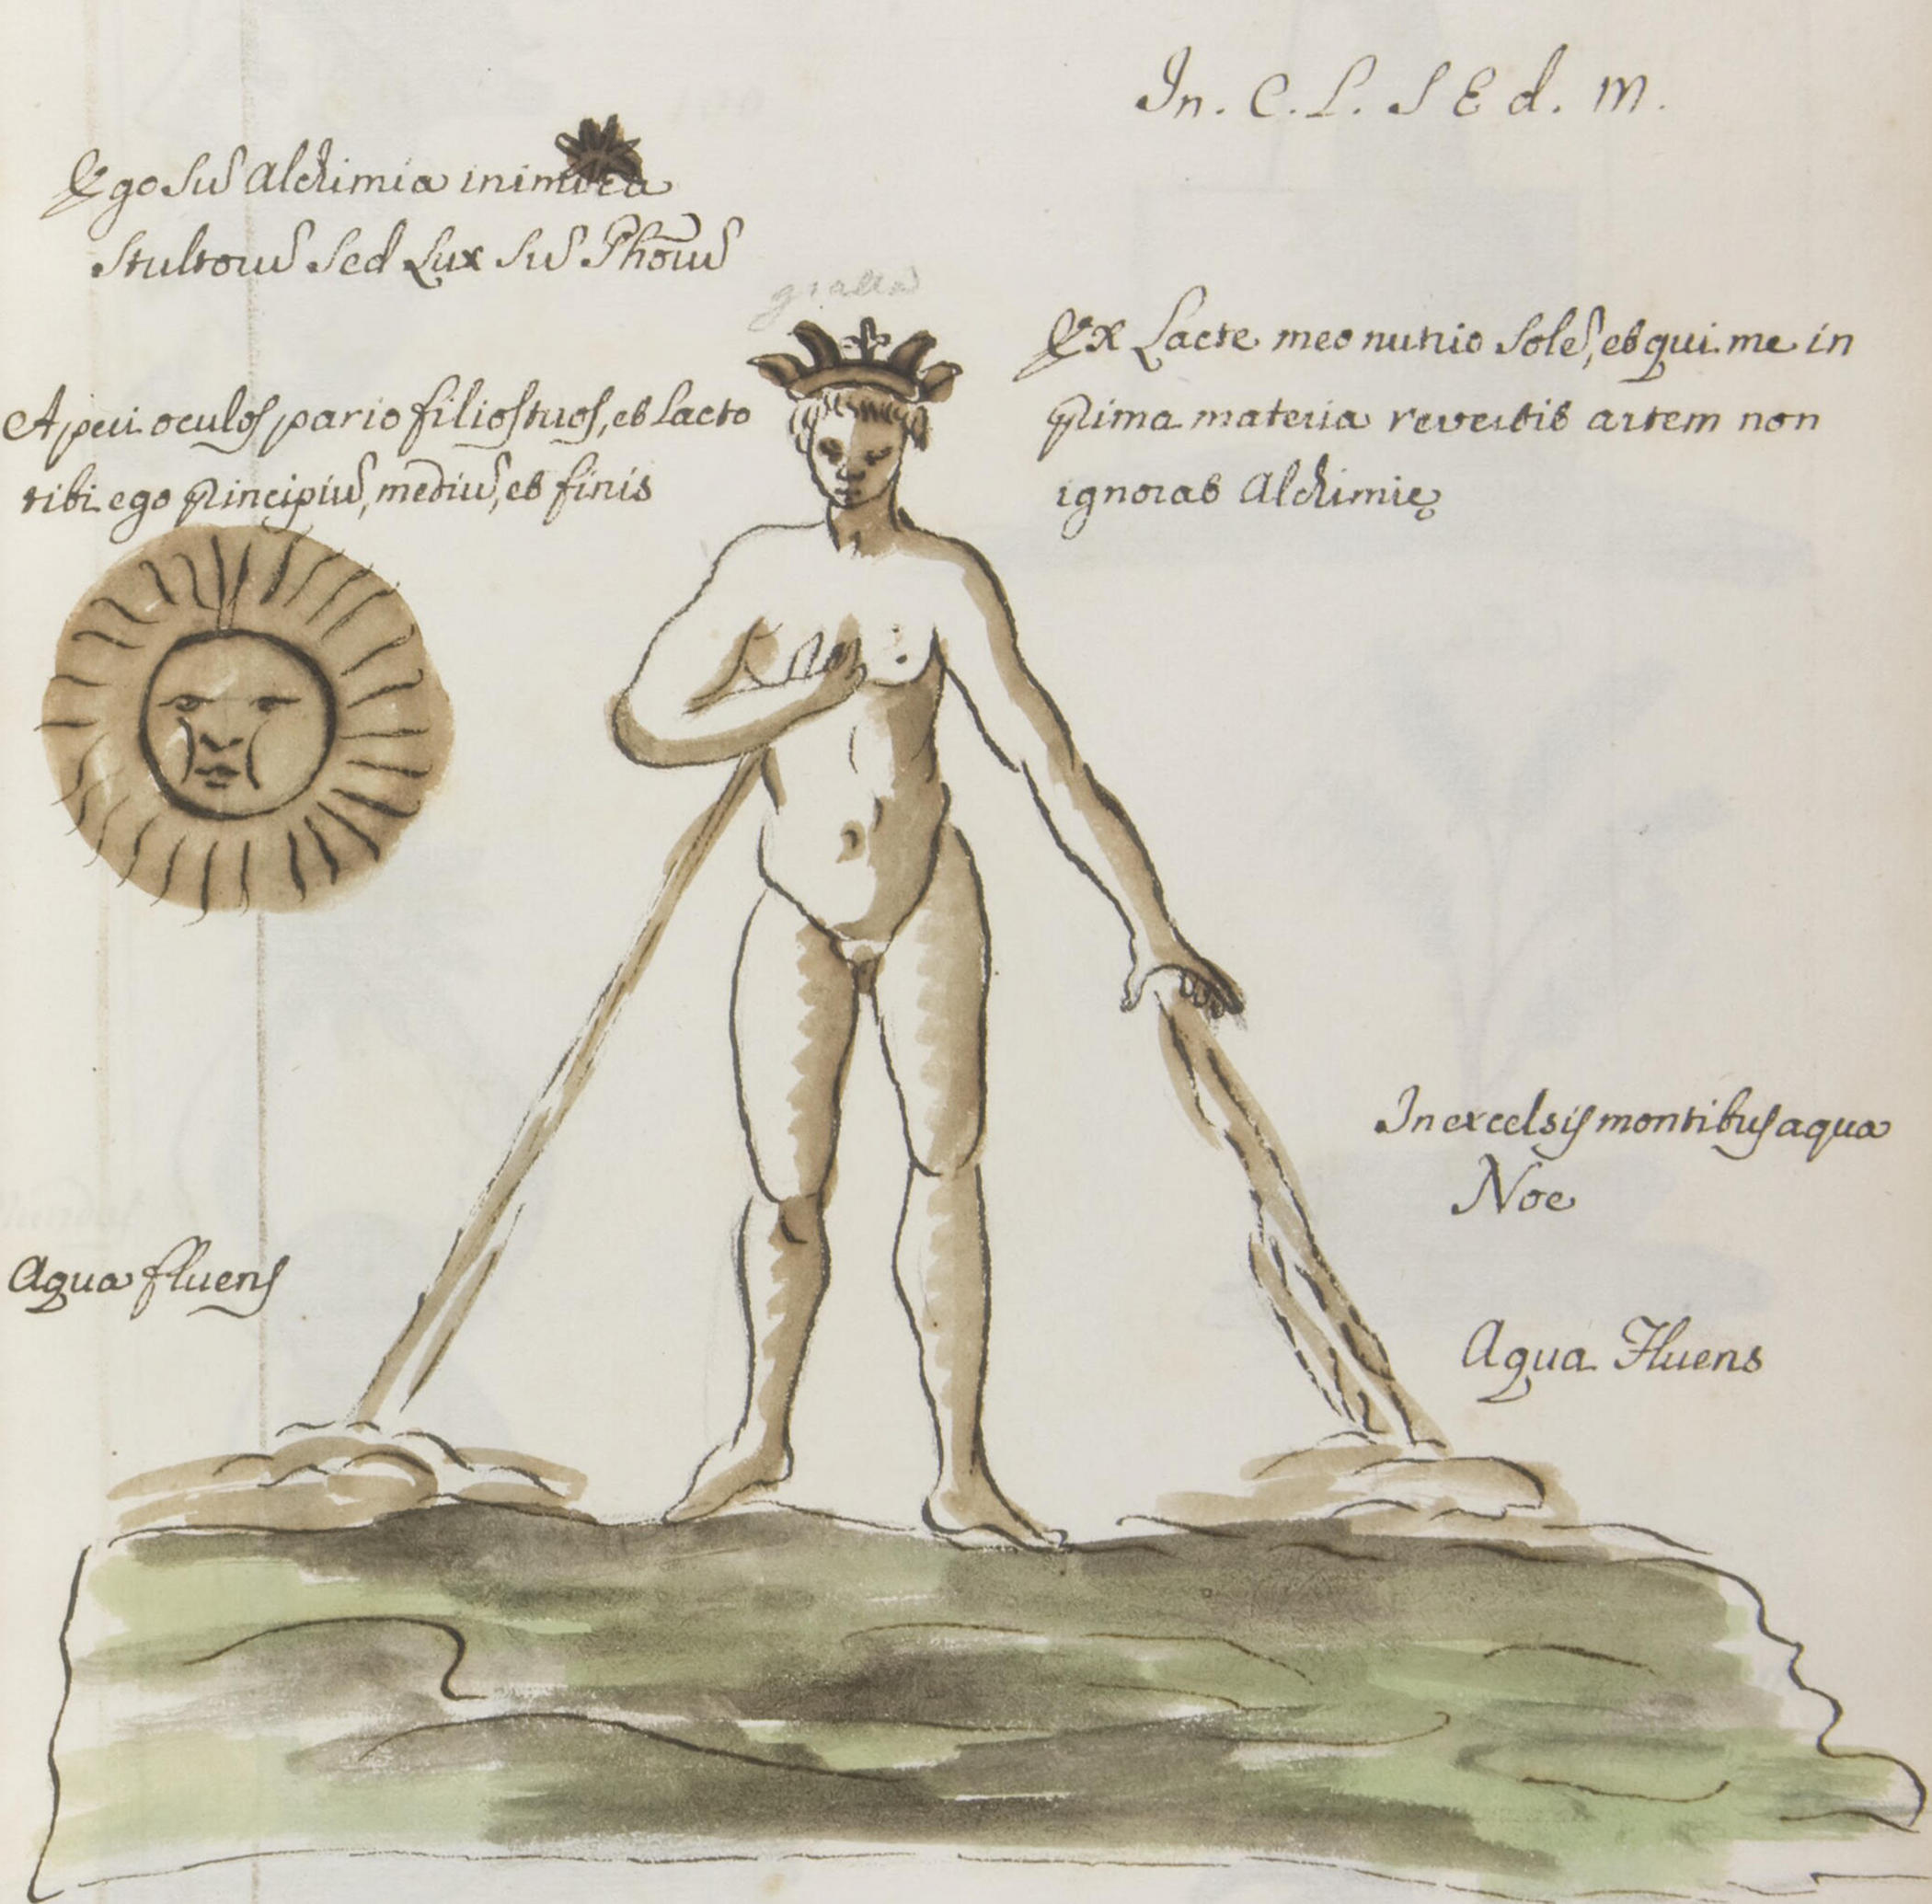 In. C. L. S E d. m.
Ego Sũ Alchimia inimica
Stultorũ Sed Lux Sũ Phorũ
gialla
Ex Lacte meo nutrio Solẽ, et qui me in
prima materia revertit artem non
ignorat Alchimię
Aperi oculos pario filios tuos, et Lacto
tibi ego principiũ, mediũ, et finis
In excelsis montibus aqua
Noe
Aqua fluens
Aqua Fluens